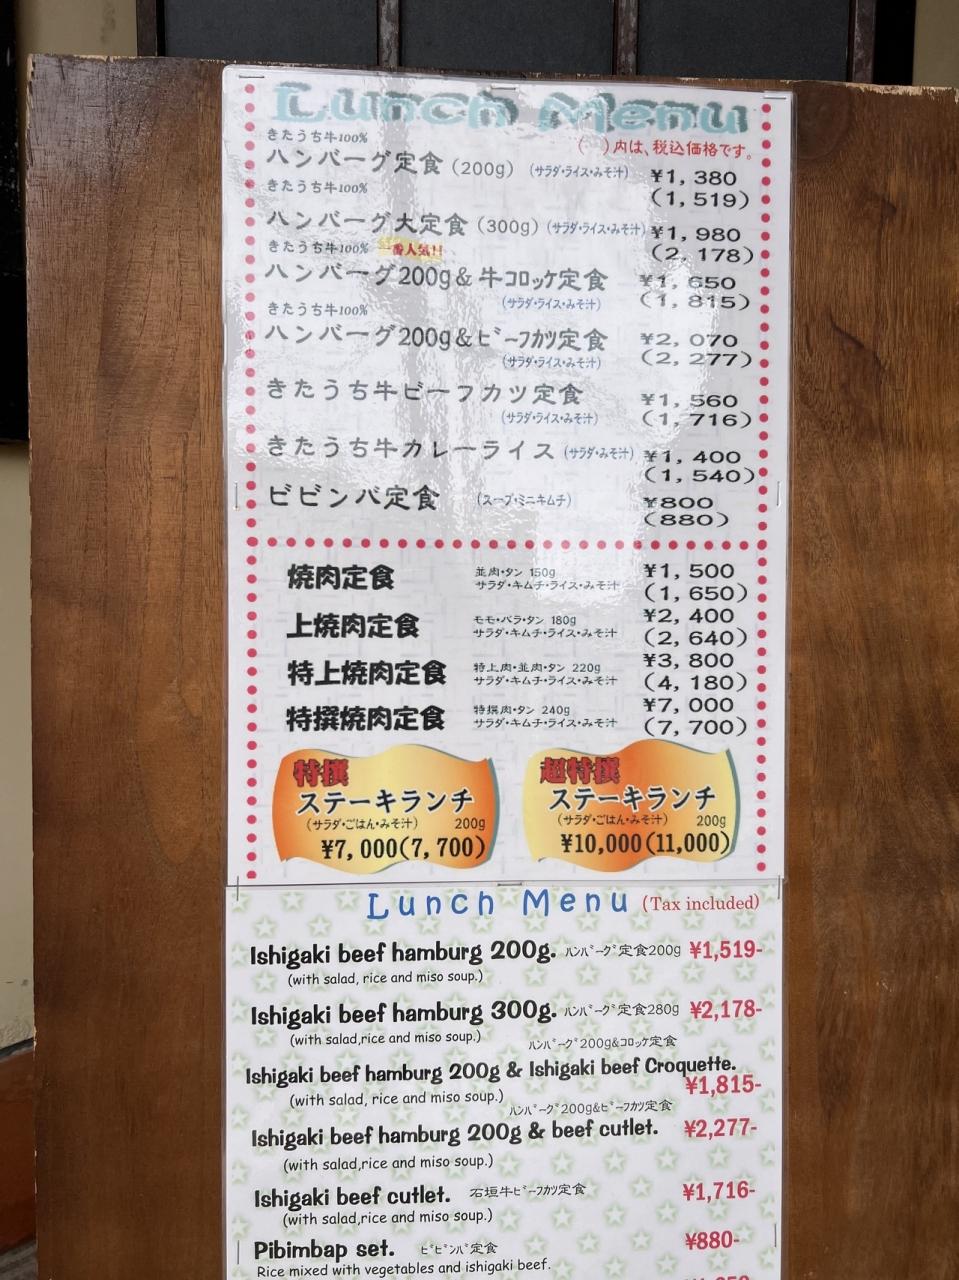 Lunch Menu
( )内は、税込価格です。
きたうち牛100%
ハンバーグ定食(200g) (サラダ・ライス・みそ汁) ¥1,380
(1,519)
きたうち牛100%
ハンバーグ大定食(300g) (サラダ・ライス・みそ汁) ¥1,980
(2,178)
きたうち牛100% 一番人気!!
ハンバーグ200g&牛コロッケ定食 ¥1,650
(サラダ・ライス・みそ汁) (1,815)
きたうち牛100%
ハンバーグ200g&ビーフカツ定食 ¥2,070
(サラダ・ライス・みそ汁) (2,277)
きたうち牛ビーフカツ定食 ¥1,560
(サラダ・ライス・みそ汁) (1,716)
きたうち牛カレーライス (サラダ・みそ汁) ¥1,400
(1,540)
ビビンバ定食 (スープ・ミニキムチ) ¥800
(880)
焼肉定食 並肉・タン 150g ¥1,500
サラダ・キムチ・ライス・みそ汁 (1,650)
上焼肉定食 モモ・バラ・タン 180g ¥2,400
サラダ・キムチ・ライス・みそ汁 (2,640)
特上焼肉定食 特上肉・並肉・タン 220g ¥3,800
サラダ・キムチ・ライス・みそ汁 (4,180)
特撰焼肉定食 特撰肉・タン 240g ¥7,000
サラダ・キムチ・ライス・みそ汁 (7,700)
特撰
ステーキランチ
(サラダ・ごはん・みそ汁) 200g
¥7,000(7,700)
超特撰
ステーキランチ
(サラダ・ごはん・みそ汁) 200g
¥10,000(11,000)
Lunch Menu (Tax included)
Ishigaki beef hamburg 200g. ハンバーグ定食200g ¥1,519-
(with salad, rice and miso soup.)
Ishigaki beef hamburg 300g. ハンバーグ定食280g ¥2,178-
(with salad,rice and miso soup.)
ハンバーグ200g&コロッケ定食
Ishigaki beef hamburg 200g & Ishigaki beef Croquette.
(with salad, rice and miso soup.) ¥1,815-
ハンバーグ200g&ビーフカツ定食
Ishigaki beef hamburg 200g & beef cutlet. ¥2,277-
(with salad,rice and miso soup.)
Ishigaki beef cutlet. 石垣牛ビーフカツ定食 ¥1,716-
(with salad,rice and miso soup.)
Pibimbap set. ビビンバ定食 ¥880-
Rice mixed with vegetables and ishigaki beef.